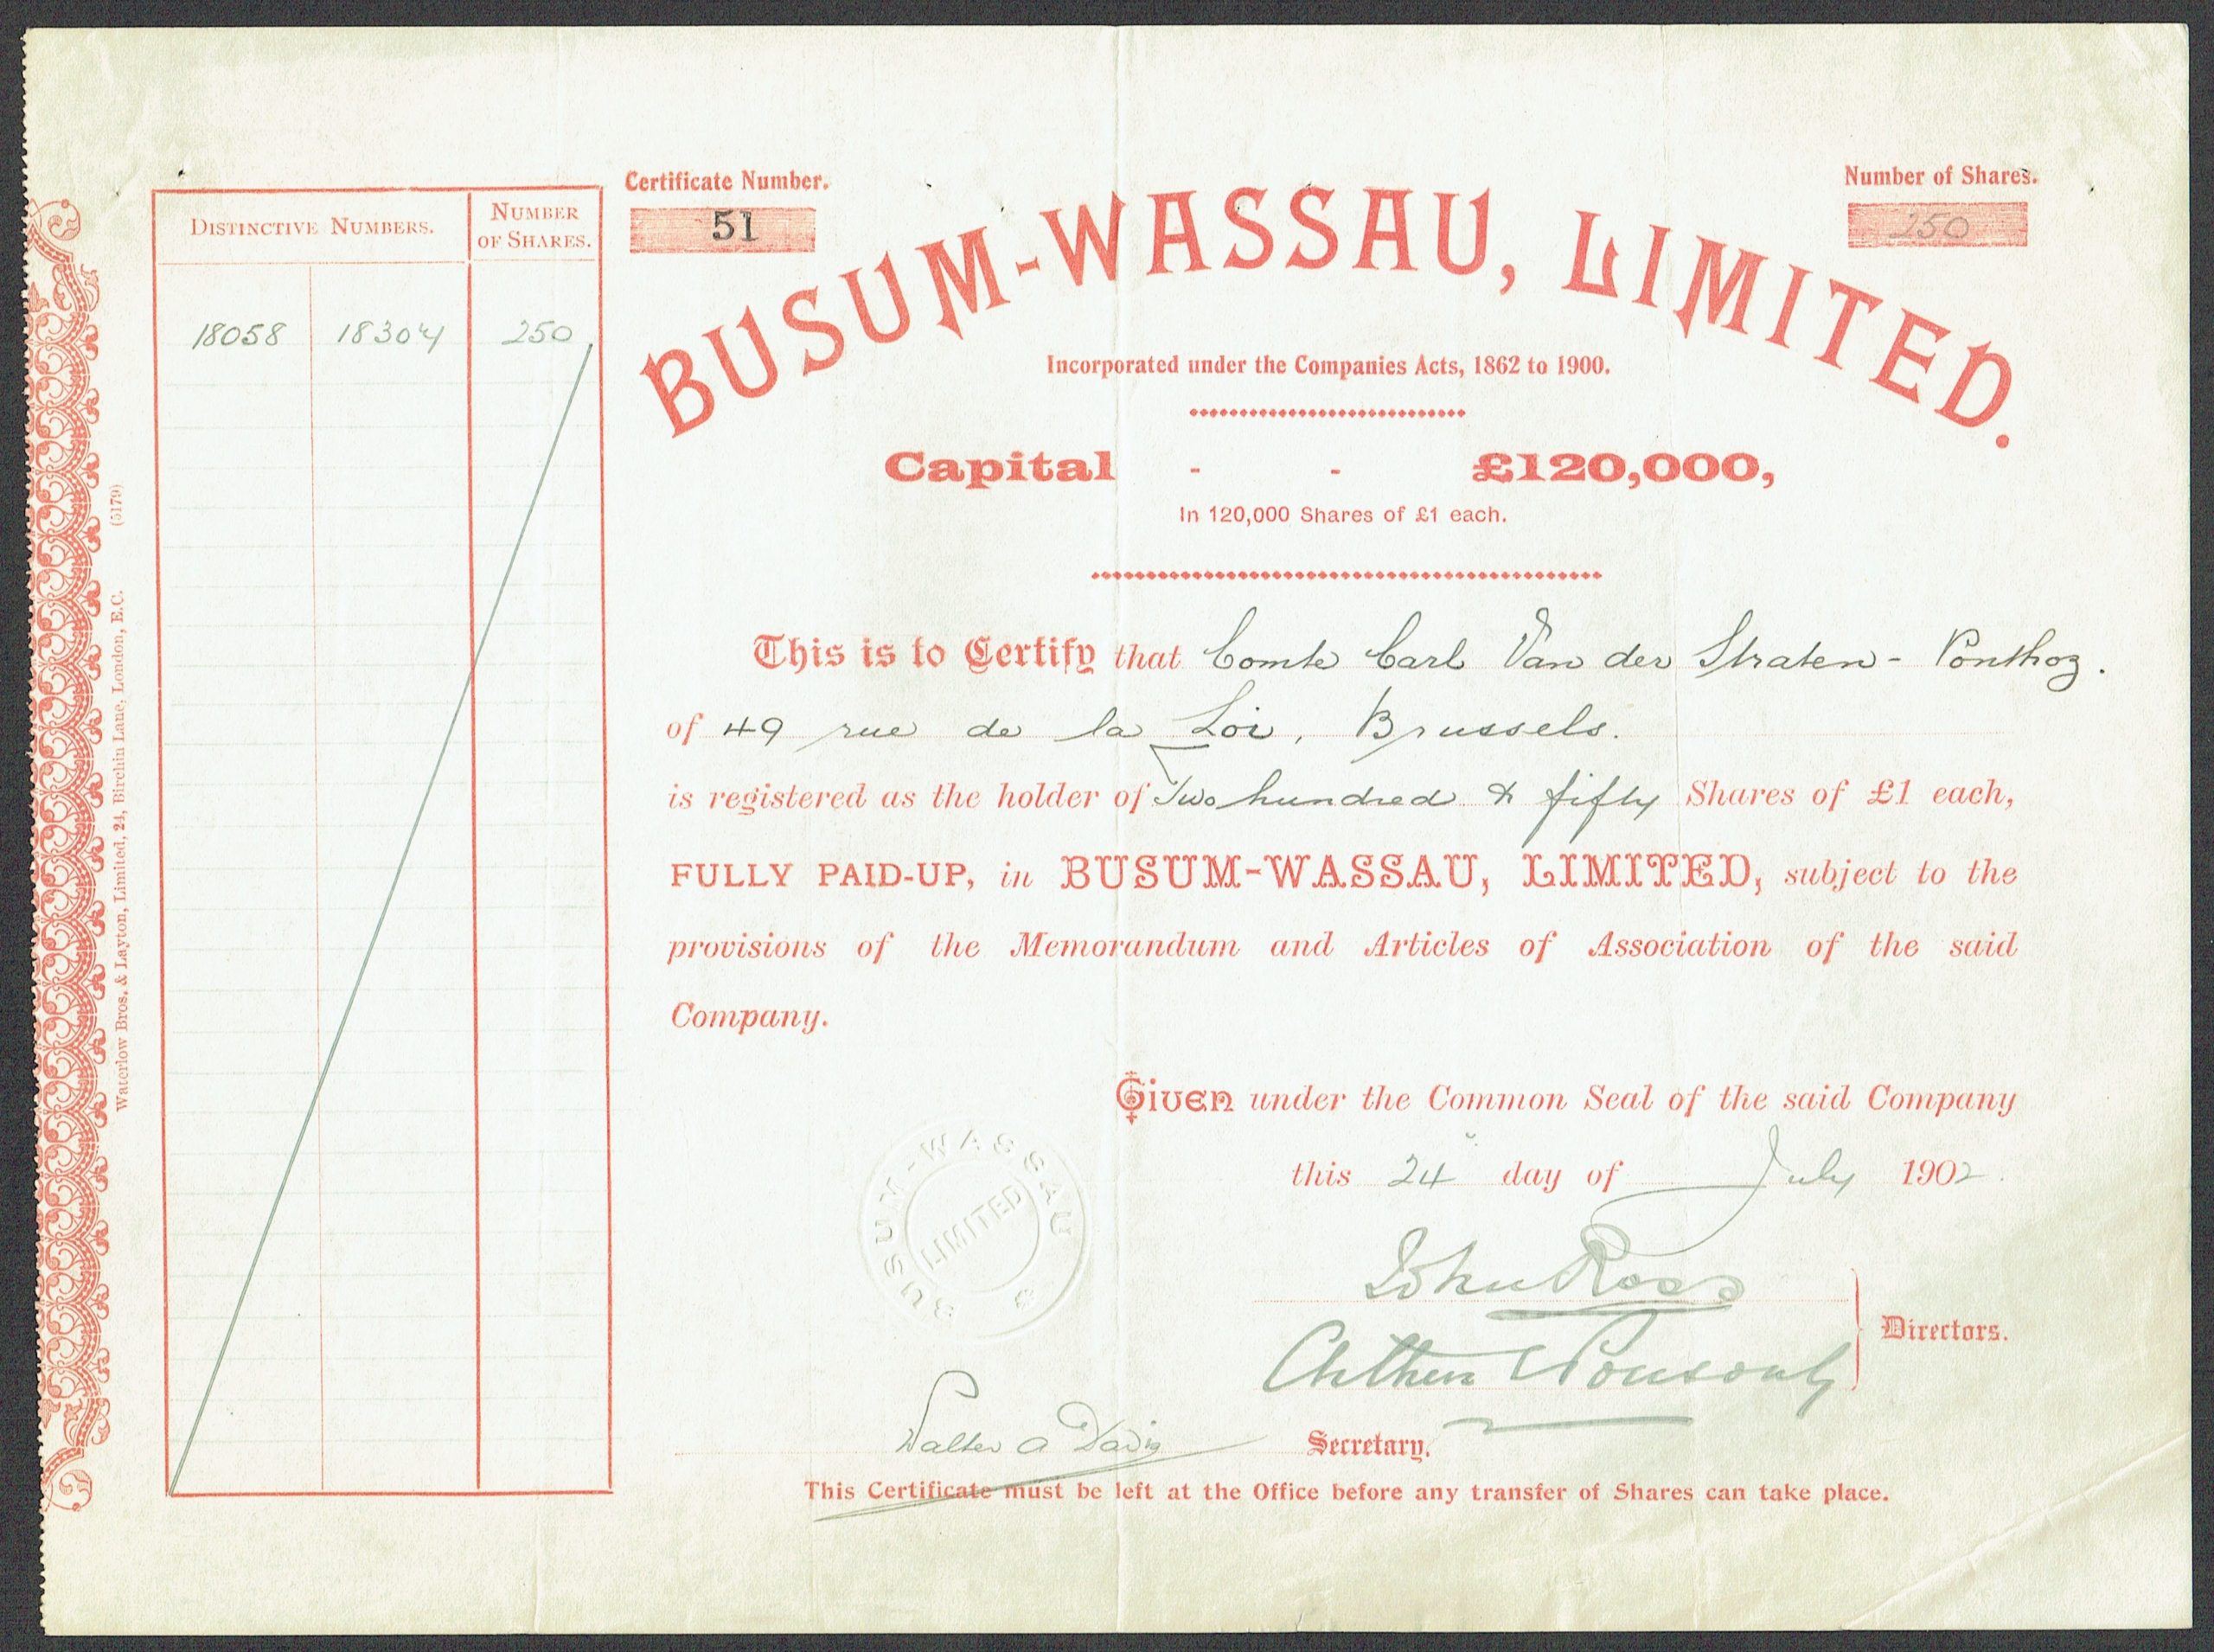 Certificate Number.
51
Number of Shares.
250
BUSUM-WASSAU, LIMITED.
Incorporated under the Companies Acts, 1862 to 1900.
Capital - - £120,000,
In 120,000 Shares of £1 each.
DISTINCTIVE NUMBERS.
NUMBER OF SHARES.
18058 18307 250
Waterlow Bros. & Layton, Limited, 24, Birchin Lane, London, E.C. (5179)
This is to Certify that Comte Carl Van der Straten - Ponthoz.
of 49 rue de la Loi, Brussels.
is registered as the holder of Two hundred & fifty Shares of £1 each,
FULLY PAID-UP, in BUSUM-WASSAU, LIMITED, subject to the
provisions of the Memorandum and Articles of Association of the said
Company.
Given under the Common Seal of the said Company
this 24 day of July 1902.
BUSUM-WASSAU
LIMITED
John Ross
Arthur Ponsonby
Directors.
Walter A Davis
Secretary.
This Certificate must be left at the Office before any transfer of Shares can take place.